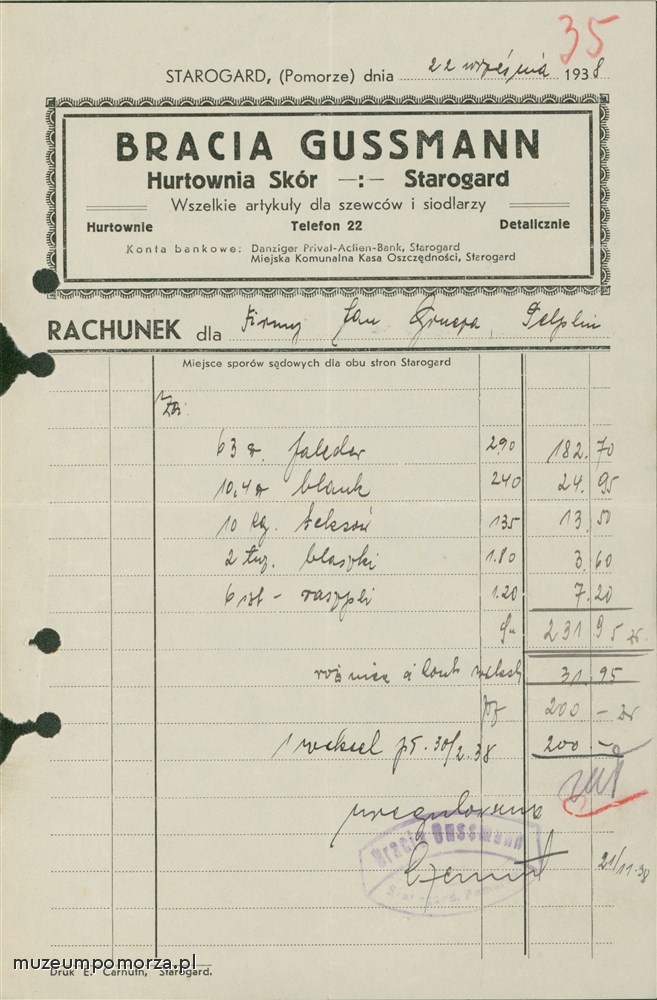 35
STAROGARD, (Pomorze) dnia 22 września 1938
BRACIA GUSSMANN
Hurtownia Skór —:— Starogard
Wszelkie artykuły dla szewców i siodlarzy
Hurtownie Telefon 22 Detalicznie
Konta bankowe: Danziger Privat-Actien-Bank, Starogard
Miejska Komunalna Kasa Oszczędności, Starogard
RACHUNEK dla Firmy Jan , Pelplin
Miejsce sporów sądowych dla obu stron Starogard
Za:
63 2.90 182.70
10,4 blank 240 24.95
10 kg. 135 13.50
2 blaszki 1.80 3.60
6 szt - raszpli 1.20 7.20
231 95 zł
różnicę 31.95
200 - zł
1 weksel pł. 30/2.38 200.-
uregulowano
Bracia Gussmann
21/11.38
Druk E. Carnuth, Starogard.
muzeumpomorza.pl